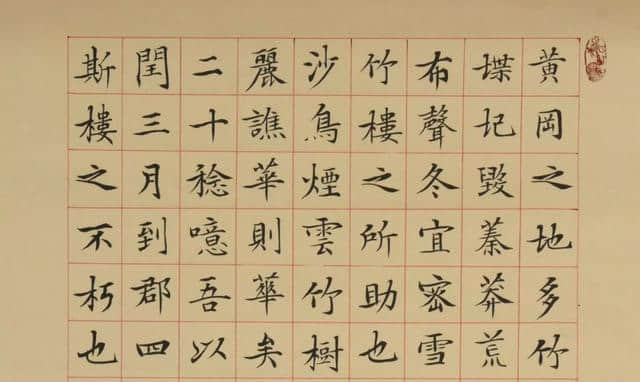 黃岡之地多竹
堞圮毀蓁莽荒
布聲冬宜密雪
竹樓之所助也
沙鳥煙雲竹樹
麗譙華則華矣
二十稔噫吾以
閏三月到郡四
斯樓之不朽也